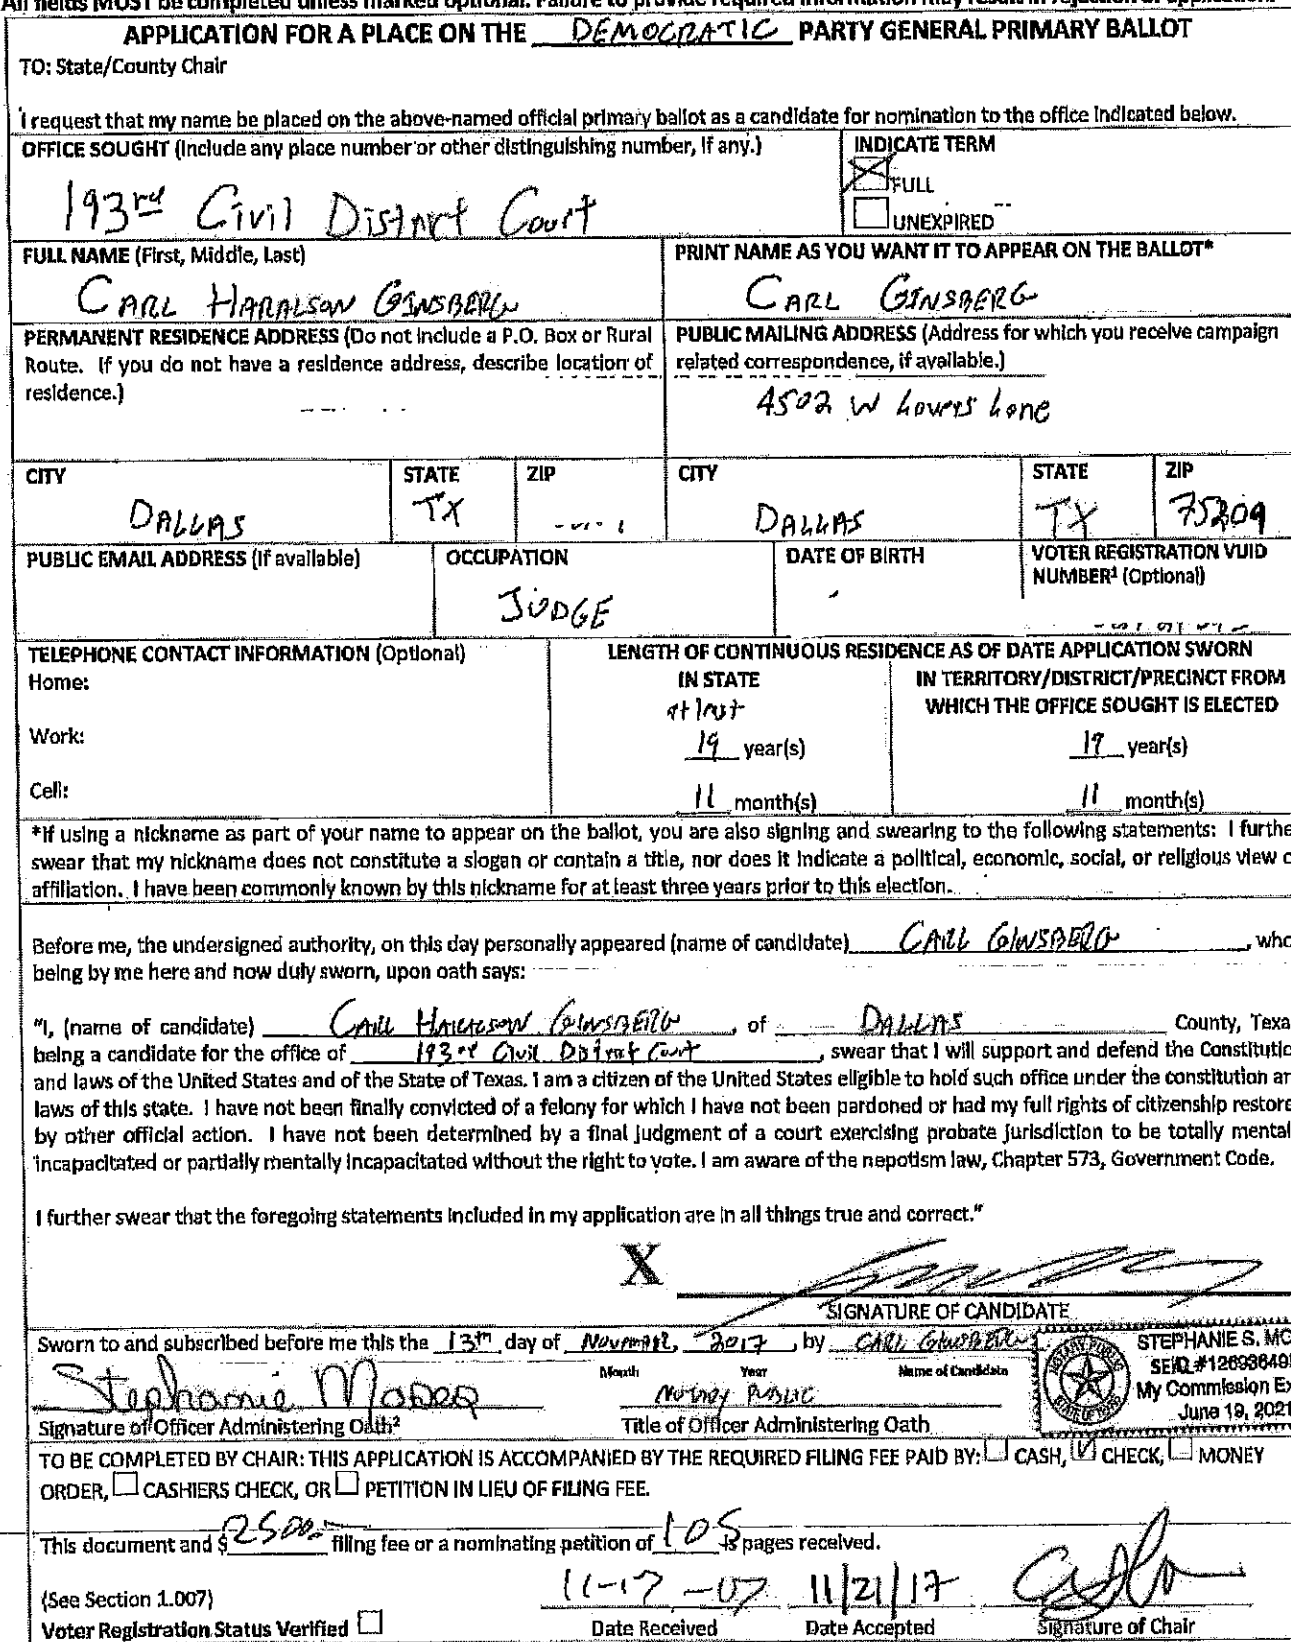 All fields MUST be completed unless marked optional. Failure to provide required information may result in rejection of application.
APPLICATION FOR A PLACE ON THE DEMOCRATIC PARTY GENERAL PRIMARY BALLOT
TO: State/County Chair
I request that my name be placed on the above-named official primary ballot as a candidate for nomination to the office indicated below.
OFFICE SOUGHT (Include any place number or other distinguishing number, if any.)
193rd Civil District Court
INDICATE TERM
FULL
UNEXPIRED
FULL NAME (First, Middle, Last)
CARL HARALSON GINSBERG
PRINT NAME AS YOU WANT IT TO APPEAR ON THE BALLOT*
CARL GINSBERG
PERMANENT RESIDENCE ADDRESS (Do not include a P.O. Box or Rural
Route. If you do not have a residence address, describe location of
residence.)
PUBLIC MAILING ADDRESS (Address for which you receive campaign
related correspondence, if available.)
4502 W Lovers Lane
CITY
DALLAS
STATE
TX
ZIP
CITY
DALLAS
STATE
TX
ZIP
75209
PUBLIC EMAIL ADDRESS (If available)
OCCUPATION
JUDGE
DATE OF BIRTH
VOTER REGISTRATION VUID
NUMBER¹ (Optional)
TELEPHONE CONTACT INFORMATION (Optional)
Home:
Work:
Cell:
LENGTH OF CONTINUOUS RESIDENCE AS OF DATE APPLICATION SWORN
IN STATE
at least
19 year(s)
11 month(s)
IN TERRITORY/DISTRICT/PRECINCT FROM
WHICH THE OFFICE SOUGHT IS ELECTED
19 year(s)
11 month(s)
*If using a nickname as part of your name to appear on the ballot, you are also signing and swearing to the following statements: I furthe
swear that my nickname does not constitute a slogan or contain a title, nor does it indicate a political, economic, social, or religious view o
affiliation. I have been commonly known by this nickname for at least three years prior to this election.
Before me, the undersigned authority, on this day personally appeared (name of candidate) CARL GINSBERG, who
being by me here and now duly sworn, upon oath says:
"I, (name of candidate) CARL HARALSON GINSBERG, of DALLAS County, Texa
being a candidate for the office of 193rd Civil District Court, swear that I will support and defend the Constitutio
and laws of the United States and of the State of Texas. I am a citizen of the United States eligible to hold such office under the constitution an
laws of this state. I have not been finally convicted of a felony for which I have not been pardoned or had my full rights of citizenship restore
by other official action. I have not been determined by a final judgment of a court exercising probate jurisdiction to be totally mental
incapacitated or partially mentally incapacitated without the right to vote. I am aware of the nepotism law, Chapter 573, Government Code.
I further swear that the foregoing statements included in my application are in all things true and correct."
X
SIGNATURE OF CANDIDATE
Sworn to and subscribed before me this the 13th day of November, 2017, by CARL GINSBERG
Month Year Name of Candidate
Stephanie Moses
Notary Public
Signature of Officer Administering Oath²
Title of Officer Administering Oath
NOTARY PUBLIC
STATE OF TEXAS
STEPHANIE S. MO
My Commission Ex
June 19, 2021
TO BE COMPLETED BY CHAIR: THIS APPLICATION IS ACCOMPANIED BY THE REQUIRED FILING FEE PAID BY: CASH, CHECK, MONEY
ORDER, CASHIERS CHECK, OR PETITION IN LIEU OF FILING FEE.
This document and $2500.- filing fee or a nominating petition of 105 pages received.
(See Section 1.007)
Voter Registration Status Verified
11-17-07
Date Received
11/21/17
Date Accepted
Signature of Chair